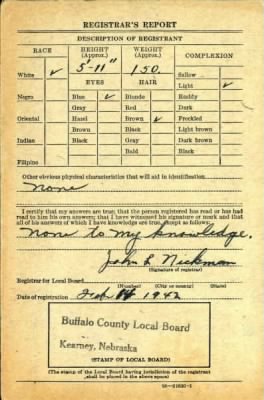 REGISTRAR'S REPORT
DESCRIPTION OF REGISTRANT
RACE HEIGHT (Approx.) WEIGHT (Approx.) COMPLEXION
5'-11" 150
White ✓ EYES HAIR Sallow
Light ✓
Negro Blue ✓ Blonde Ruddy
Gray Red Dark
Oriental Hazel Brown ✓ Freckled
Brown Black Light brown
Indian Black Gray Dark brown
Bald Black
Filipino
Other obvious physical characteristics that will aid in identification
None
I certify that my answers are true; that the person registered has read or has had
read to him his own answers; that I have witnessed his signature or mark and that
all of his answers of which I have knowledge are true, except as follows:
None to my knowledge.
John L
(Signature of registrar)
Registrar for Local Board
(Number) (City or county) (State)
Date of registration Feb 16 1942
Buffalo County Local Board
Kearney, Nebraska
(STAMP OF LOCAL BOARD)
(The stamp of the Local Board having jurisdiction of the registrant
shall be placed in the above space)